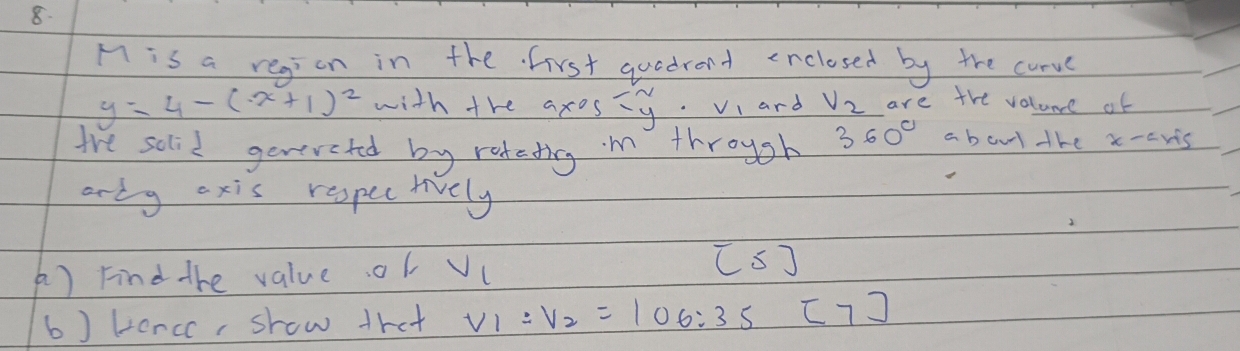 8.
M is a region in the first quadrant enclosed by the curve
y = 4 - (x+1)² with the axes y. V1 and V2 are the volume of
the solid generated by rotating m through 360° about the x-axis
and y axis respectively
a) Find the value of V1 [5]
b) Hence, show that V1 : V2 = 106:35 [7]